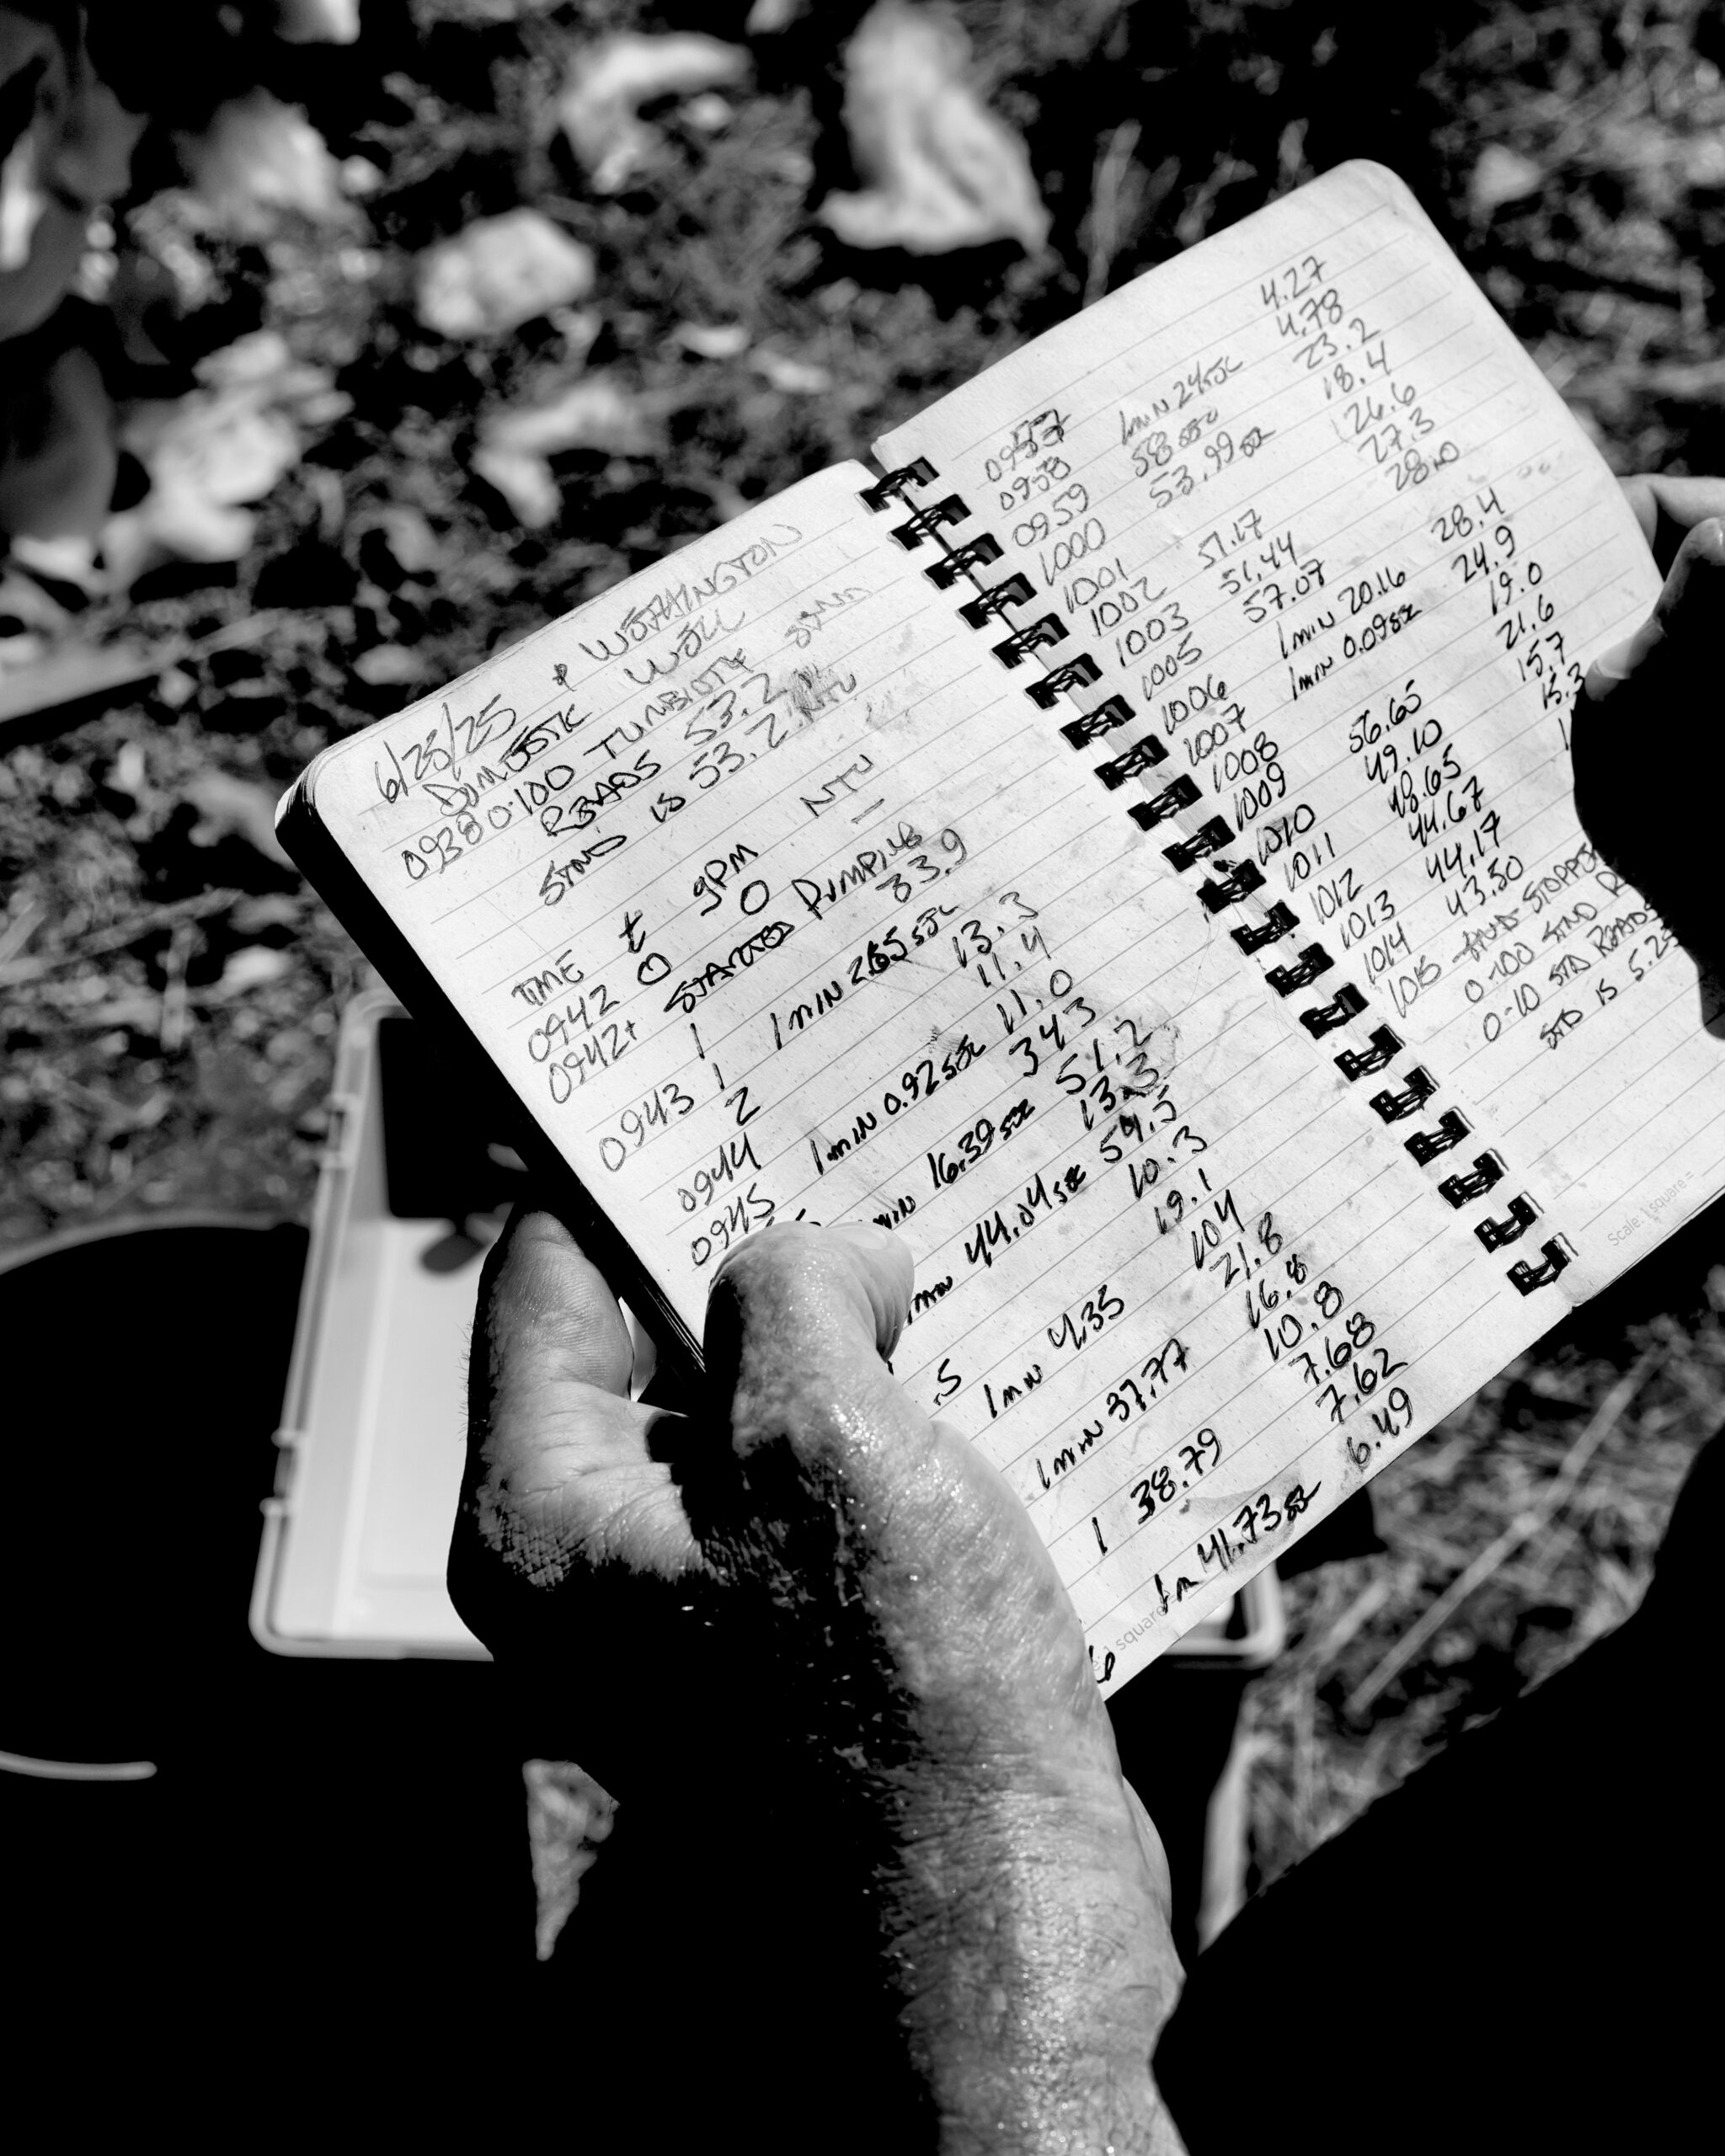 6/25/25 * WORTHINGTON
DOMESTIC WELL
0938 0-100 TURBIDITY STAND
READS 53.2
STND IS 53.2 NTU
TIME t gPM NTU
0942 0 0 —
0942+ STARTED PUMPING
1 33.9
0943 1 1 MIN 2.65 SEC
2 13.3
0944 11.4
0945 1 MIN 0.92 SEC 11.0
343
MIN 16.39 SEC 51.2
13.3
MIN 44.04 SEC 54.5
10.3
19.1
.5 1 MIN 4.35 104
21.8
1 MIN 37.77 16.8
10.8
1 38.79 7.68
7.62
1m 41.73 SEC 6.49
6
square
4.27
0957 1 MIN 24 SEC 4.78
0958 58 SEC 23.2
0959 53.99 SEC 18.4
1000 26.6
1001 27.3
1002 51.17 28
1003 51.44
1005 57.07 28.4
1006 1 MIN 20.16 24.9
1007 1 MIN 0.09 SEC 19.0
1008 21.6
1009 56.65 15.7
1010 49.10 15.3
1011 48.65 1
1012 44.67
1013 44.17
1014 43.50
1015 STOPPE
0-100 STND R
0-10 STD READS
STD IS 5.2
Scale: 1 square =